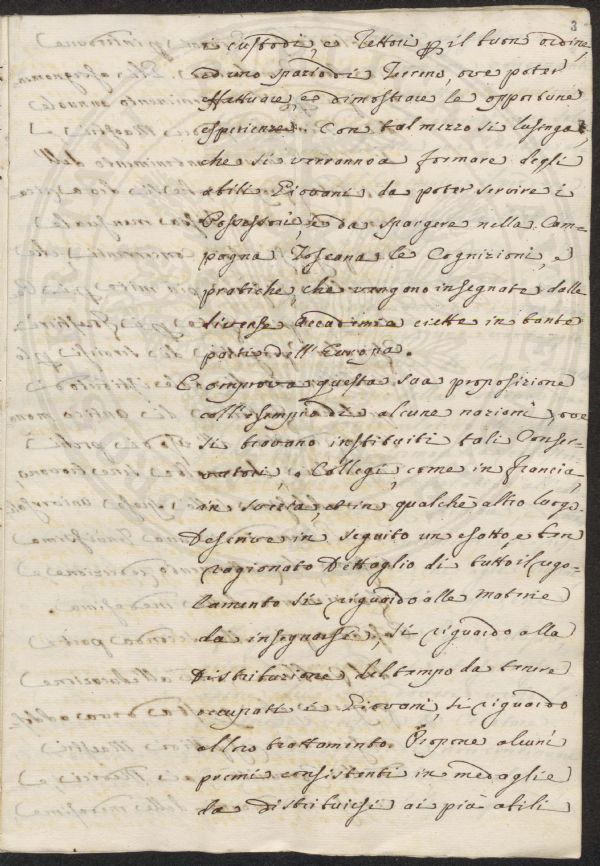 3
ri custodi, e Rettori per il buon ordine,
ed uno spazio di Terreno, ove poter
effettuare, e dimostrare le opportune
esperienze. Con tal mezzo si lusinga,
che si verranno a formare degli
abili Giovani da poter servire i
Possessori, e da spargere nella Cam-
pagna Toscana le Cognizioni, e
pratiche, che vengono insegnate dalle
diverse Accademie erette in tante
parti dell'Europa.
Comprova questa sua proposizione
coll'esempio di alcune nazioni, ove
si trovano instituiti tali Conser-
vatori, o Collegi, come in Francia,
in Svezia, et in qualche altro luogo.
Descrive in seguito un esatto, e ben
ragionato Dettaglio di tutto il rego-
lamento sì riguardo alle materie
da insegnarsi, sì riguardo alla
Distribuzione del tempo da tenere
occupati i Giovani, sì riguardo
al loro trattamento. Propone alcuni
premi consistenti in medaglie
da distribuirsi ai più abili